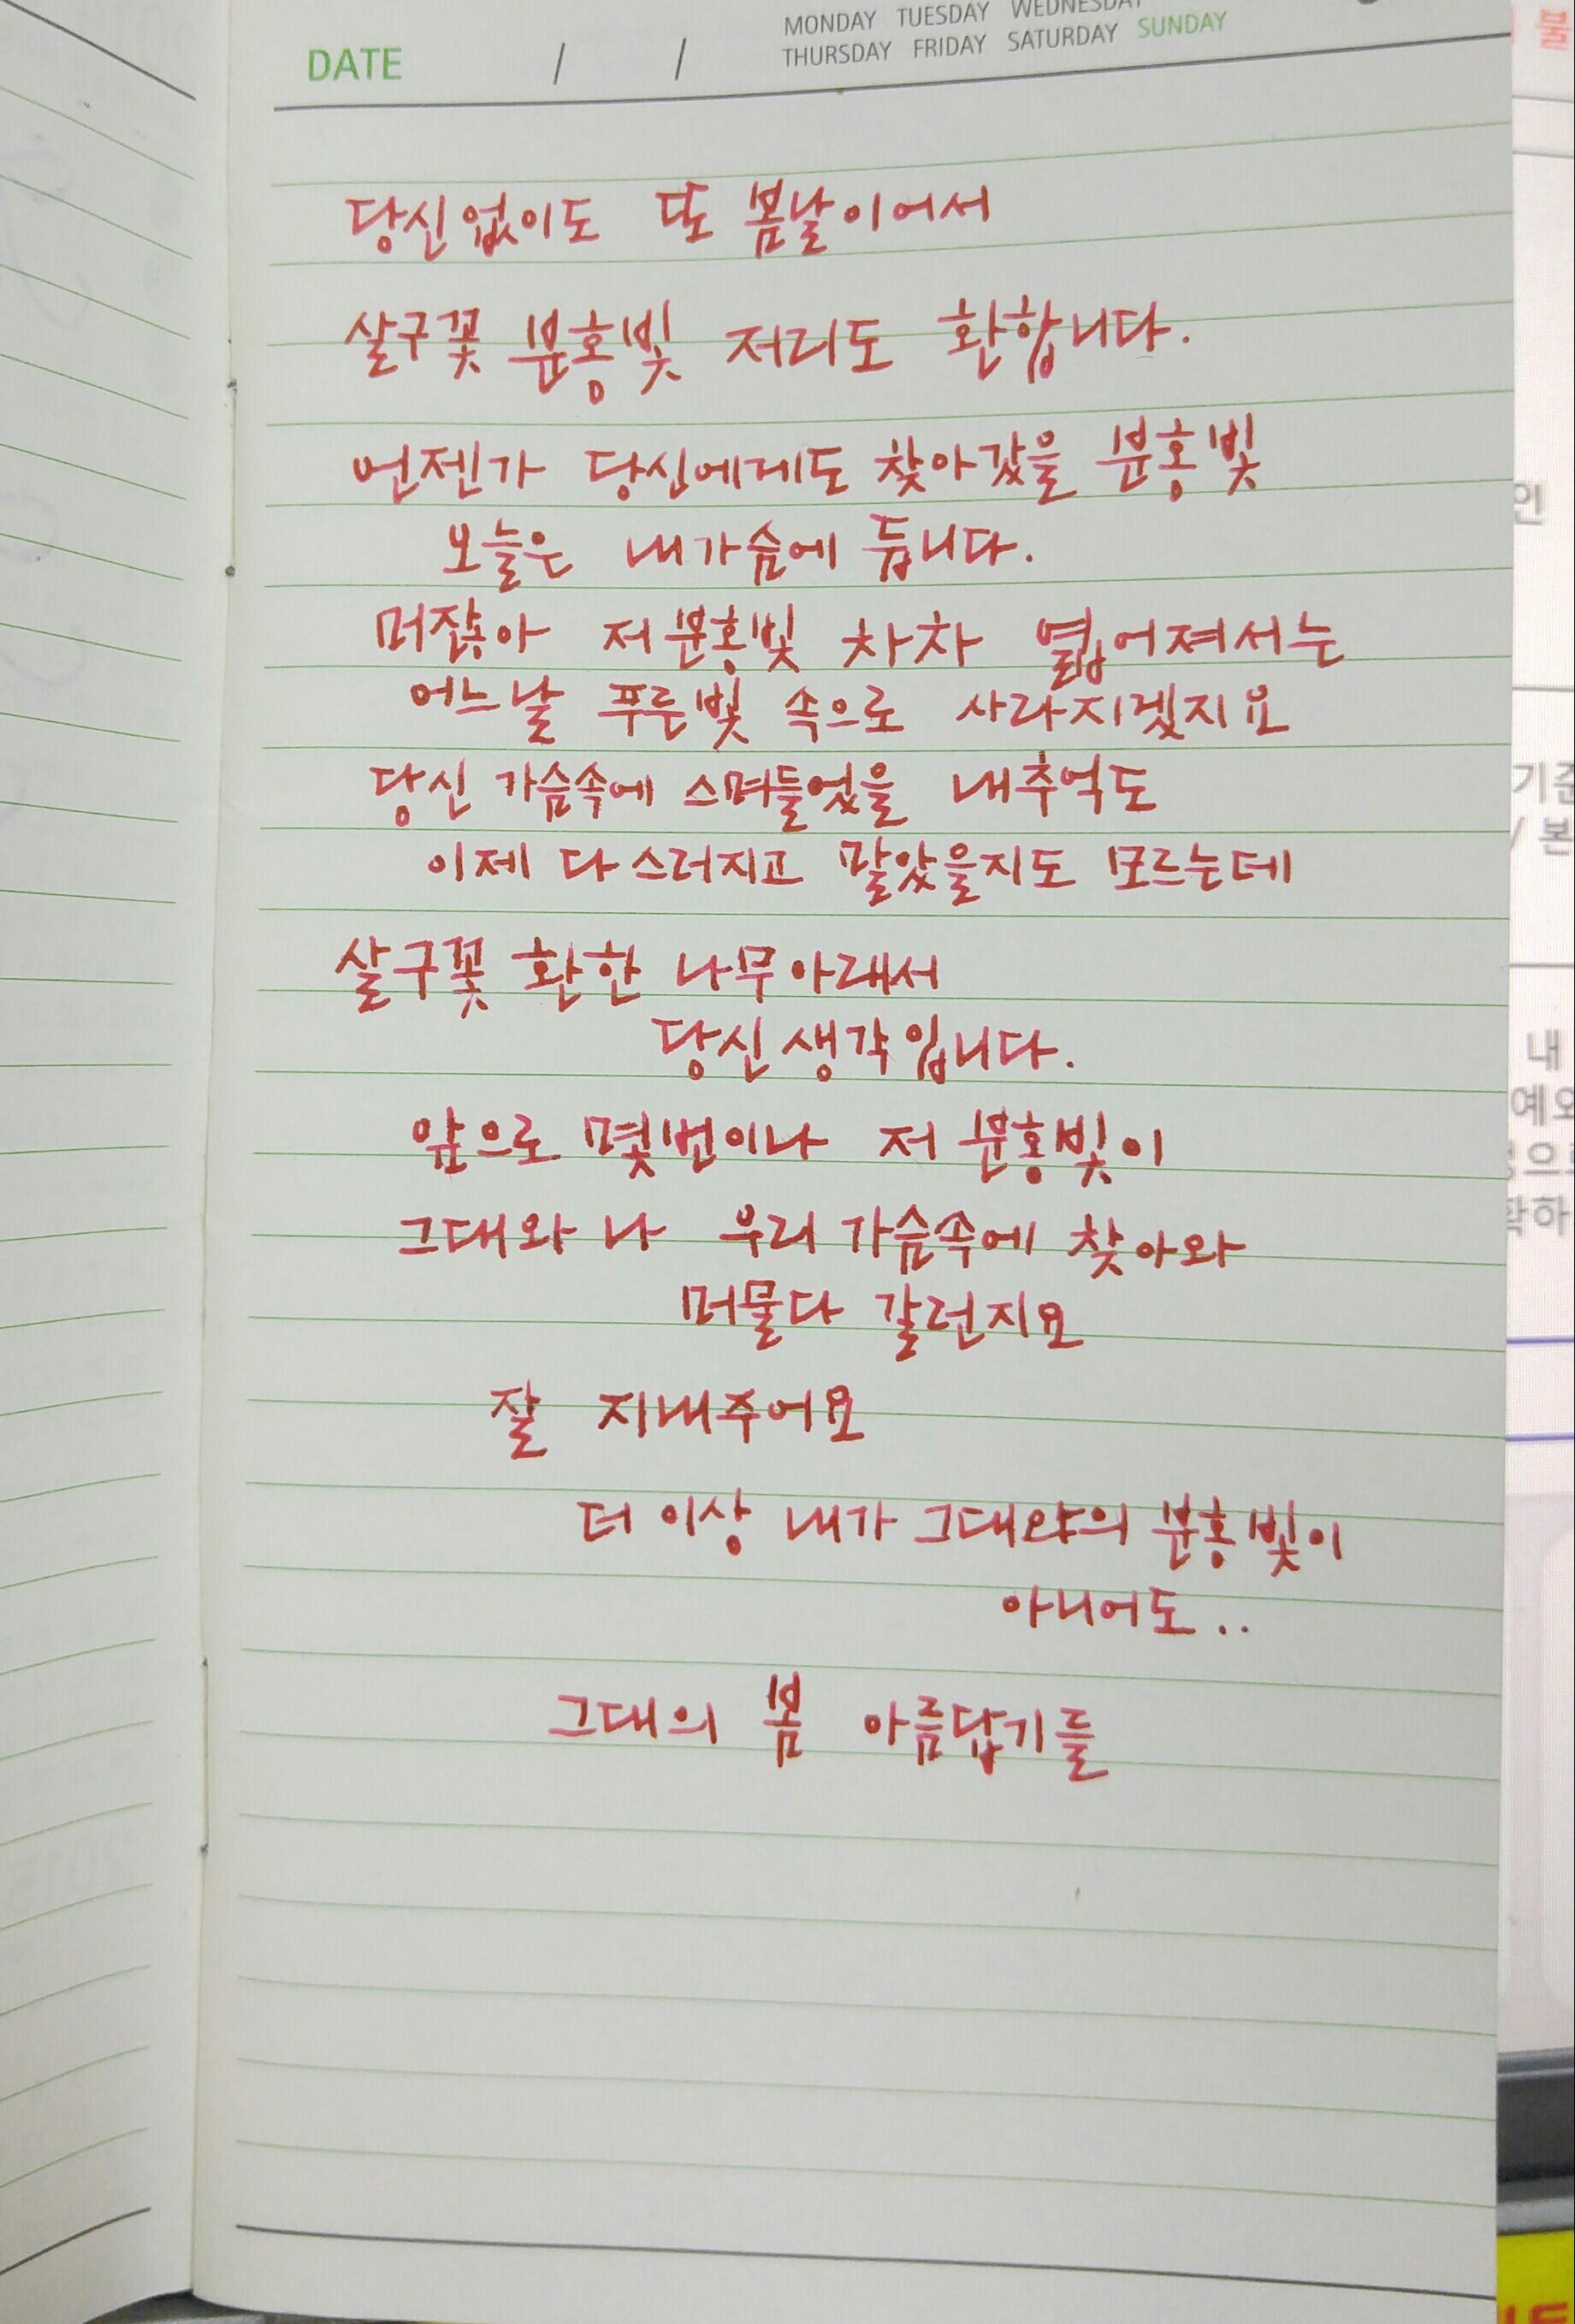 MONDAY TUESDAY WEDNESDAY
DATE / / THURSDAY FRIDAY SATURDAY SUNDAY
당신 없이도 또 봄날이어서
살구꽃 분홍빛 저리도 환합니다.
언젠가 당신에게도 찾아갔을 분홍빛
오늘은 내가슴에 둡니다.
머잖아 저 분홍빛 차차 엷어져서는
어느날 푸른빛 속으로 사라지겠지요
당신 가슴속에 스며들었을 내추억도
이제 다 스러지고 말았을지도 모르는데
살구꽃 환한 나무아래서
당신 생각입니다.
앞으로 몇번이나 저 분홍빛이
그대와 나 우리 가슴속에 찾아와
머물다 갈런지요
잘 지내주어요
더 이상 내가 그대안의 분홍빛이
아니어도..
그대의 봄 아름답기를
불
인
기준
/ 본
내